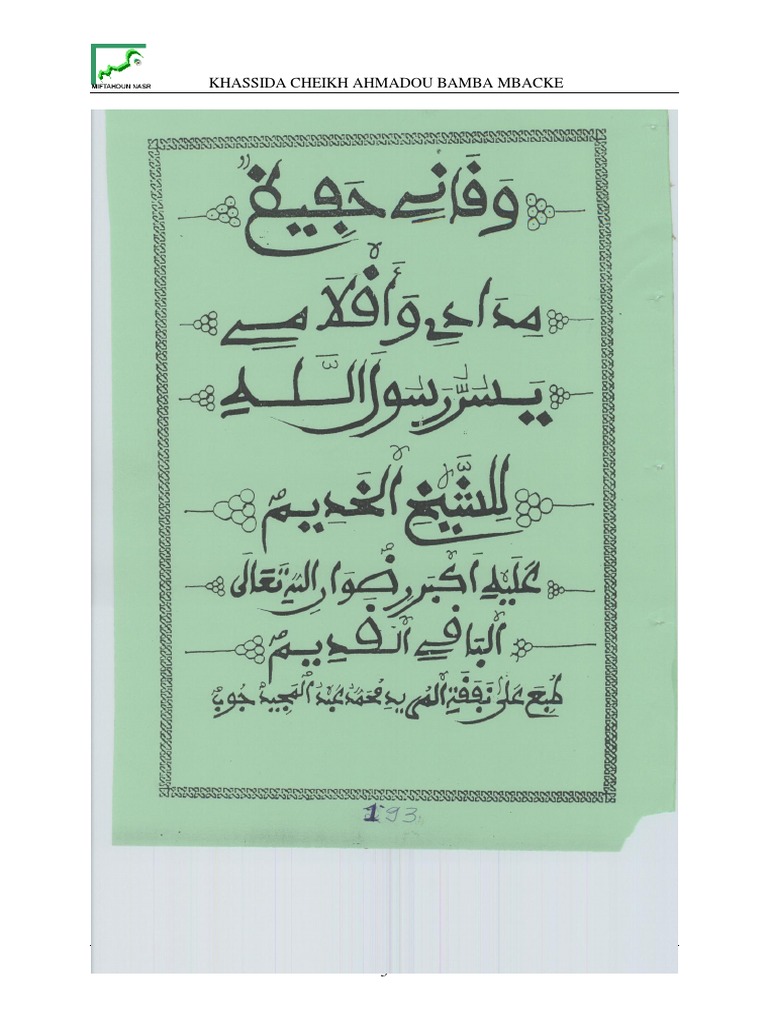 MIFTAHOUN NASR
KHASSIDA CHEIKH AHMADOU BAMBA MBACKE
وَقَانِي حَفِيظٌ
مِدَادِي وَأَقْلَامِي
يَسُرُّ رَسُولَ اللَّهِ
لِلشَّيْخِ الْخَدِيمِ
عَلَيْهِ أَكْبَرُ رِضْوَانِ اللهِ تَعَالَى
الْبَاقِي الْقَدِيمِ
طُبِعَ عَلَى نَفَقَةِ الْمُرِيدِ مُحَمَّدْ عَبْدُ الْمَجِيدْ جُوبْ
193